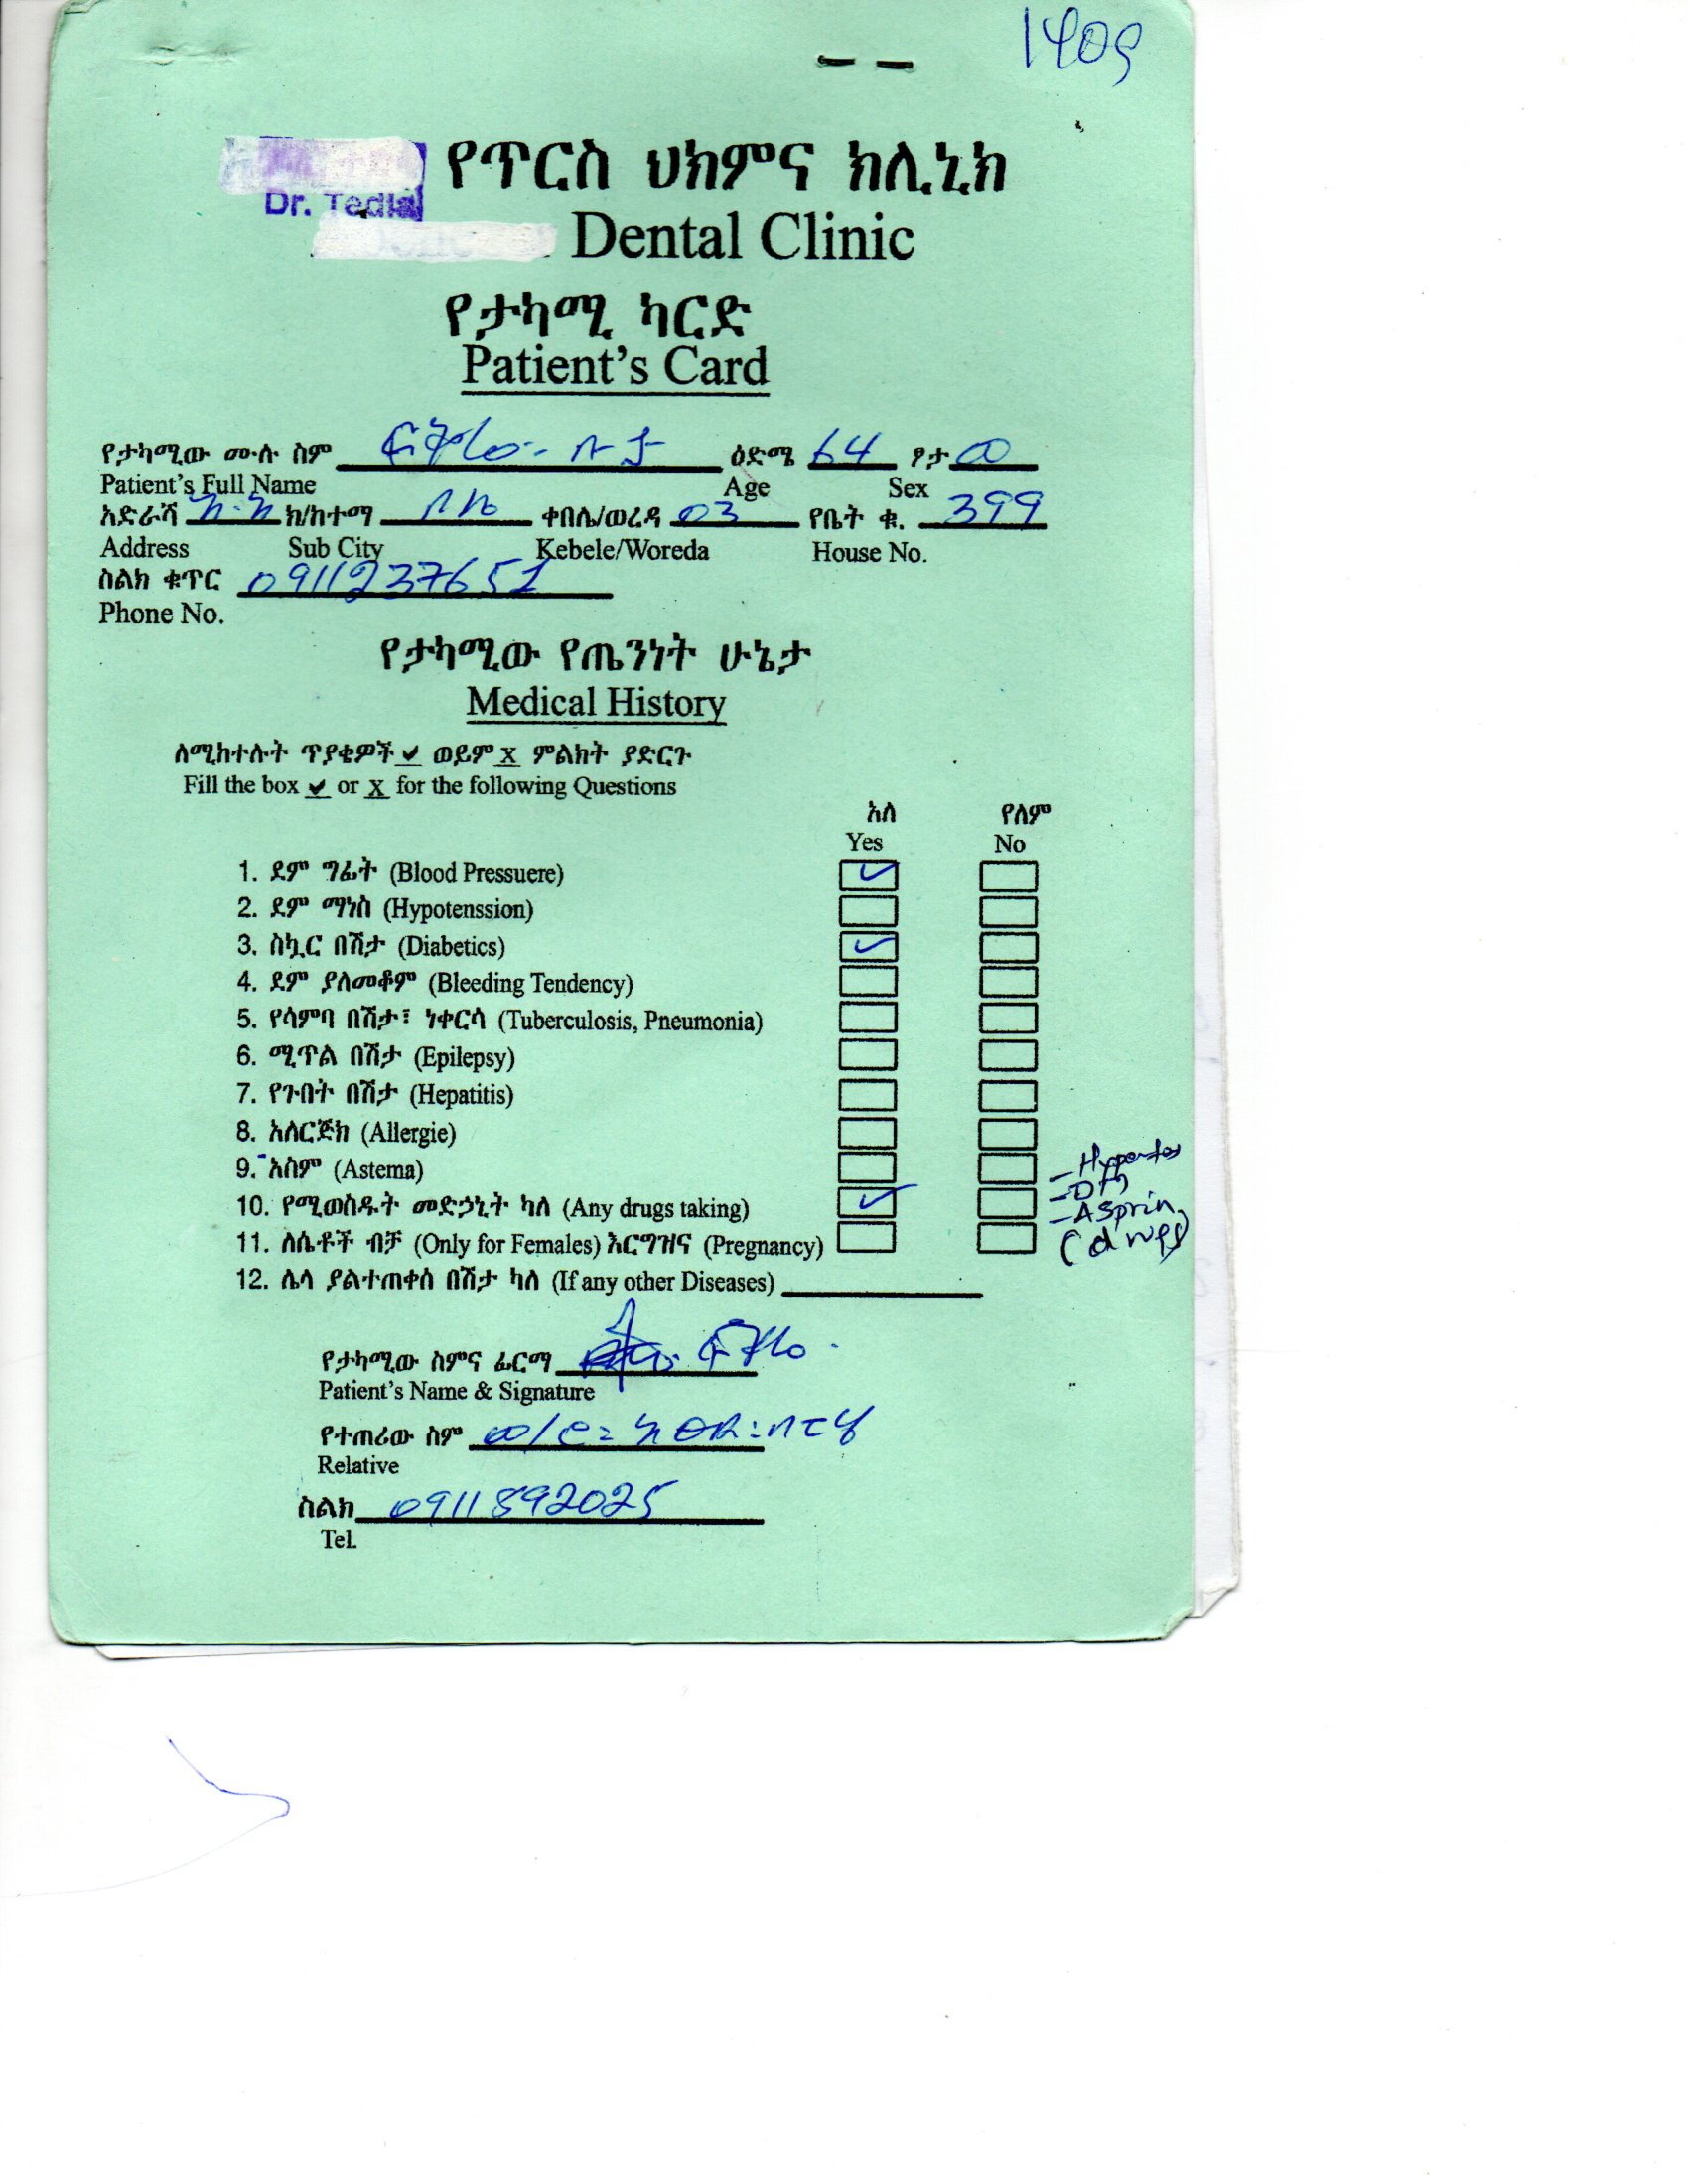 1409
የጥርስ ህክምና ክሊኒክ
Dr. Tedla
Dental Clinic
የታካሚ ካርድ
Patient's Card
የታካሚው ሙሉ ስም ዕድሜ 64 ፆታ ወ
Patient's Full Name Age Sex
አድራሻ አ.አ ክ/ከተማ ቀበሌ/ወረዳ 03 የቤት ቁ. 399
Address Sub City Kebele/Woreda House No.
ስልክ ቁጥር 0911237651
Phone No.
የታካሚው የጤንነት ሁኔታ
Medical History
ለሚከተሉት ጥያቄዎች ✓ ወይም X ምልክት ያድርጉ
Fill the box ✓ or X for the following Questions
አለ የለም
Yes No
1. ደም ግፊት (Blood Pressuere) ✓
2. ደም ማነስ (Hypotenssion)
3. ስኳር በሽታ (Diabetics) ✓
4. ደም ያለመቆም (Bleeding Tendency)
5. የሳምባ በሽታ፣ ነቀርሳ (Tuberculosis, Pneumonia)
6. ሚጥል በሽታ (Epilepsy)
7. የጉበት በሽታ (Hepatitis)
8. አለርጅክ (Allergie)
9. አስም (Astema)
10. የሚወስዱት መድኃኒት ካለ (Any drugs taking) ✓
- DM
- Asprin
11. ለሴቶች ብቻ (Only for Females) እርግዝና (Pregnancy)
(drugs)
12. ሌላ ያልተጠቀሰ በሽታ ካለ (If any other Diseases)
የታካሚው ስምና ፊርማ
Patient's Name & Signature
የተጠሪው ስም ወ/ሮ
Relative
ስልክ 0911892025
Tel.